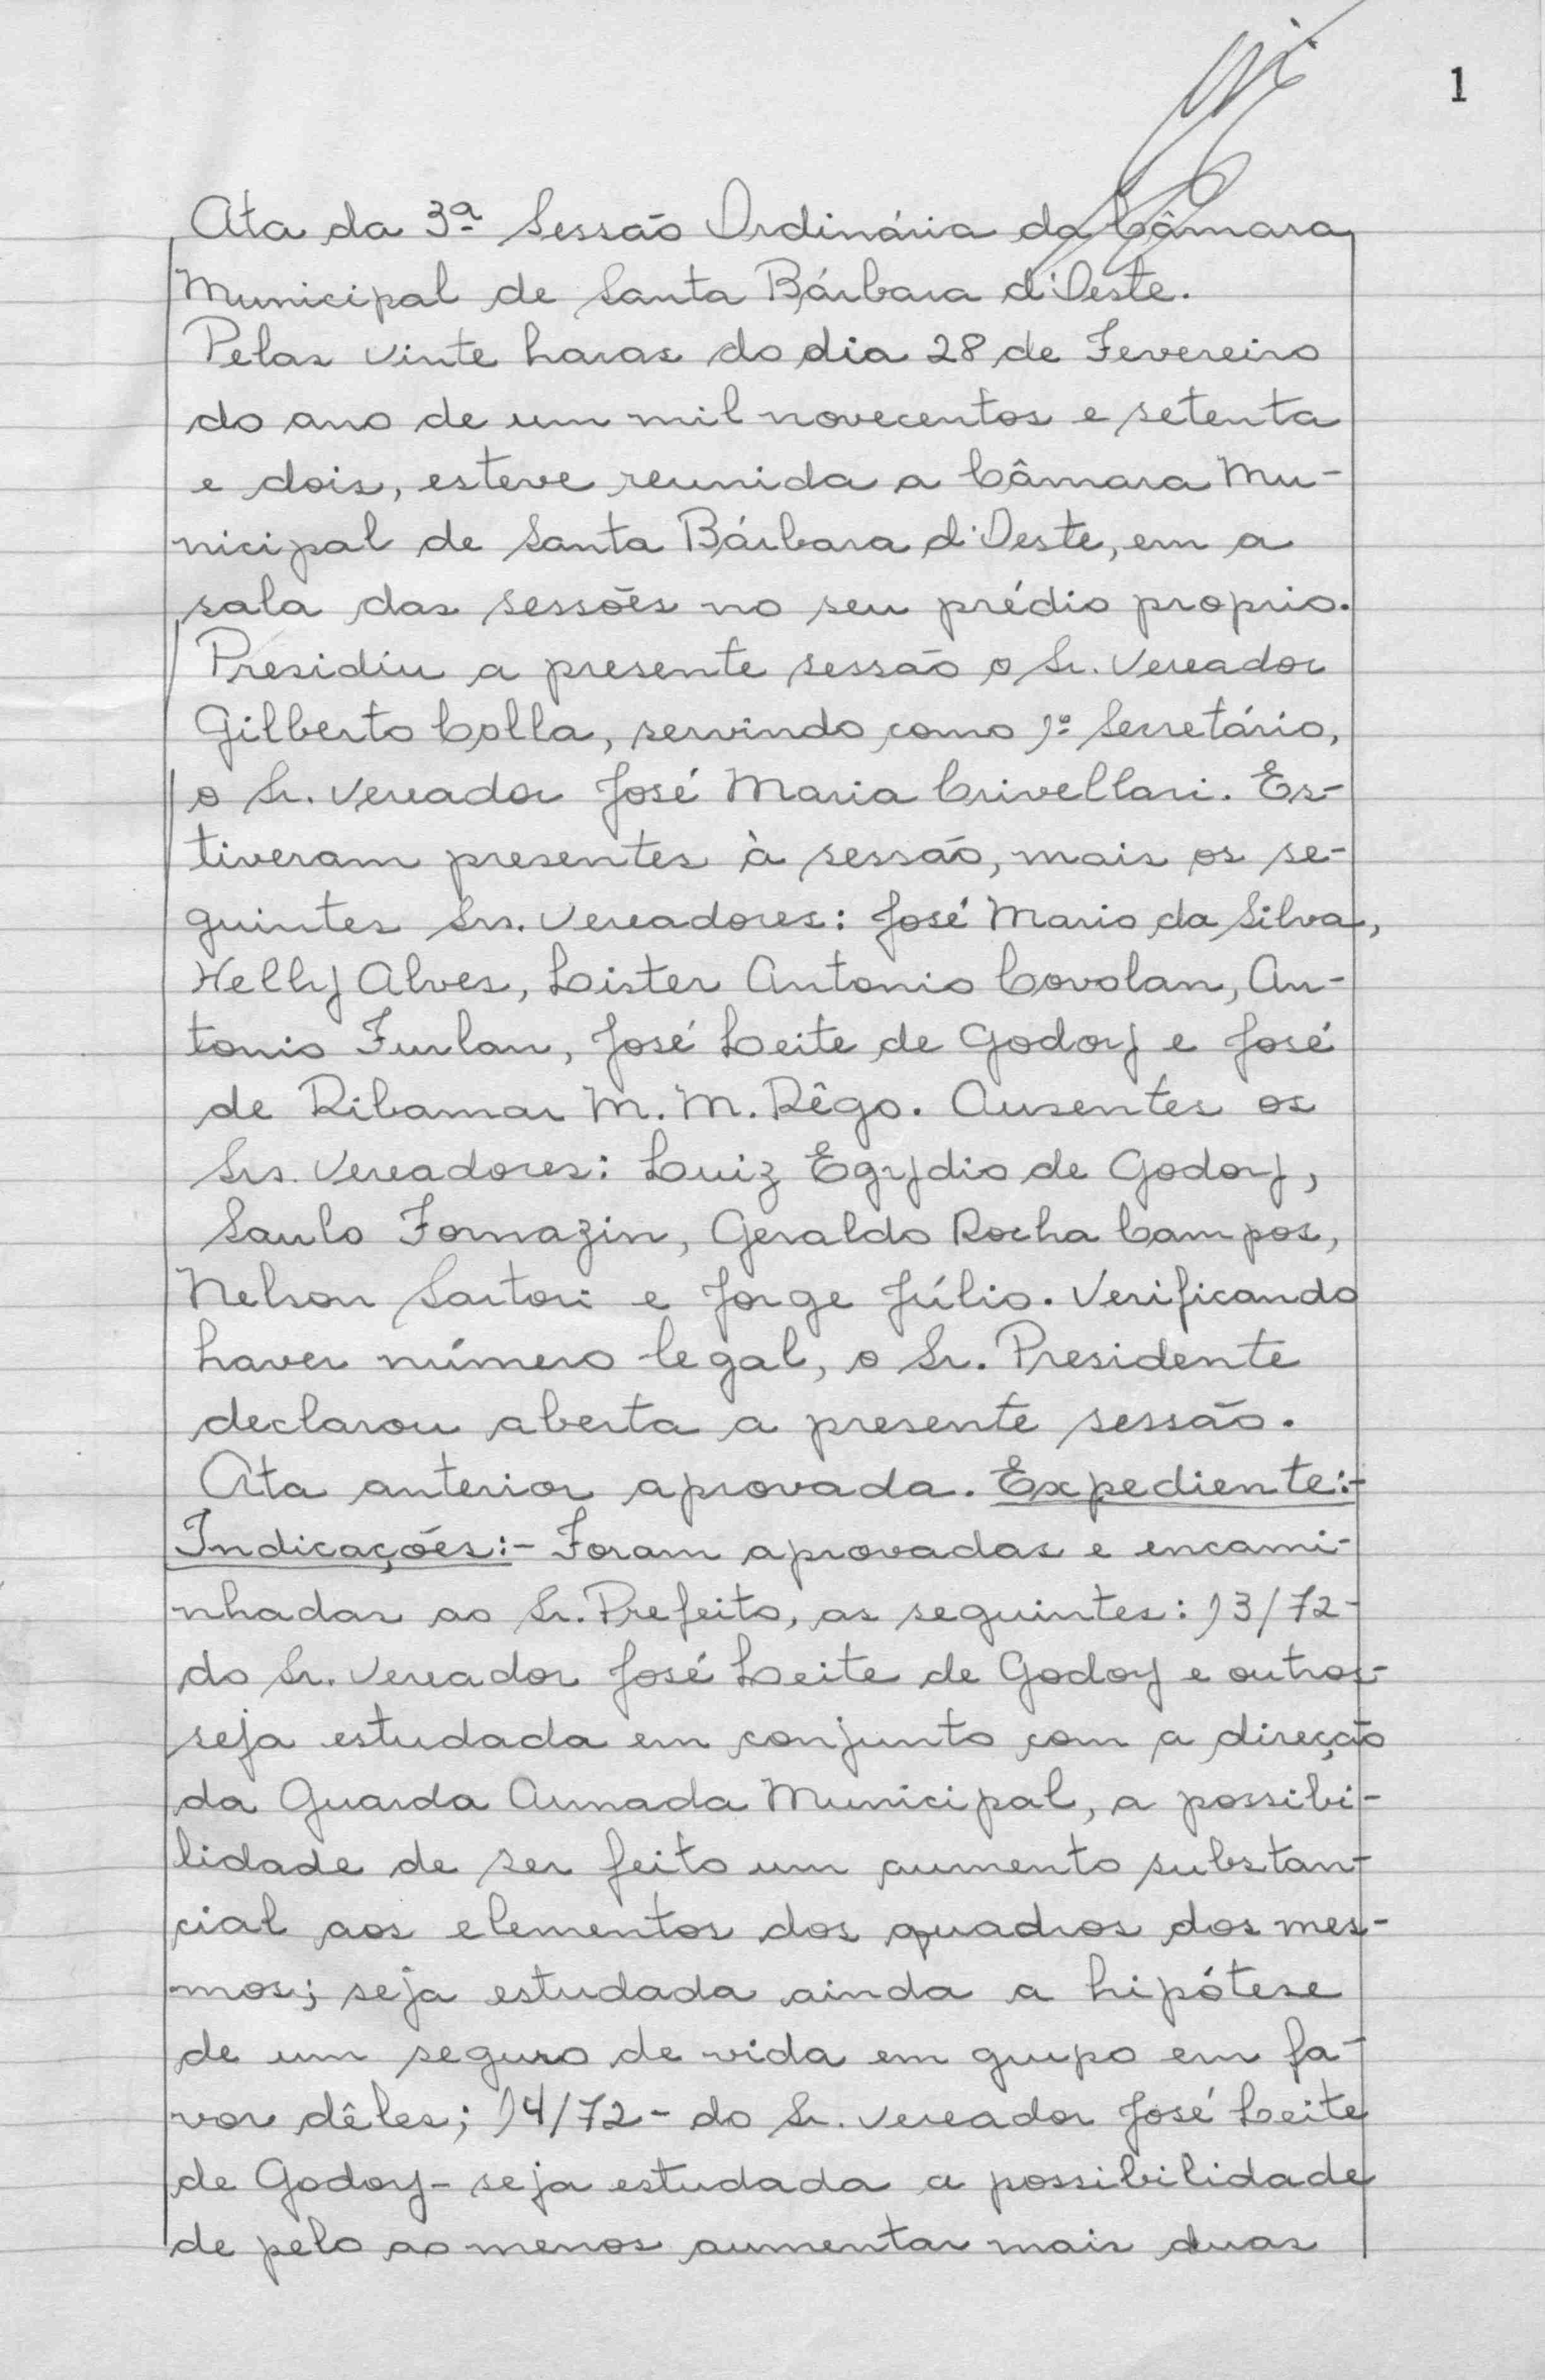 1
Ata da 3ª Sessão Ordinária da Câmara
Municipal de Santa Bárbara d'Oeste.
Pelas vinte horas do dia 28 de Fevereiro
do ano de um mil novecentos e setenta
e dois, esteve reunida a Câmara Mu-
nicipal de Santa Bárbara d'Oeste, em a
sala das sessões no seu prédio proprio.
Presidiu a presente sessão o Sr. Vereador
Gilberto Colla, servindo como 1º Secretário,
o Sr. Vereador José Maria Crivellari. Es-
tiveram presentes à sessão, mais os se-
guintes Srs. Vereadores: José Mario da Silva,
Helly Alves, Lister Antonio Covolan, An-
tonio Furlan, José Leite de Godoy e José
de Ribamar M. M. Rêgo. Ausentes os
Srs. Vereadores: Luiz Egydio de Godoy,
Saulo Fornazin, Geraldo Rocha Campos,
Nelson Sartori e Jorge Júlio. Verificando
haver número legal, o Sr. Presidente
declarou aberta a presente sessão.
Ata anterior aprovada. Expediente:-
Indicações:- Foram aprovadas e encami-
nhadas ao Sr. Prefeito, as seguintes: 13/72-
do Sr. Vereador José Leite de Godoy e outros-
seja estudada em conjunto com a direção
da Guarda Armada Municipal, a possibi-
lidade de ser feito um aumento substan-
cial aos elementos dos quadros dos mes-
mos; seja estudada ainda a hipótese
de um seguro de vida em grupo em fa-
vor dêles; 14/72- do Sr. Vereador José Leite
de Godoy- seja estudada a possibilidade
de pelo ao menos aumentar mais duas